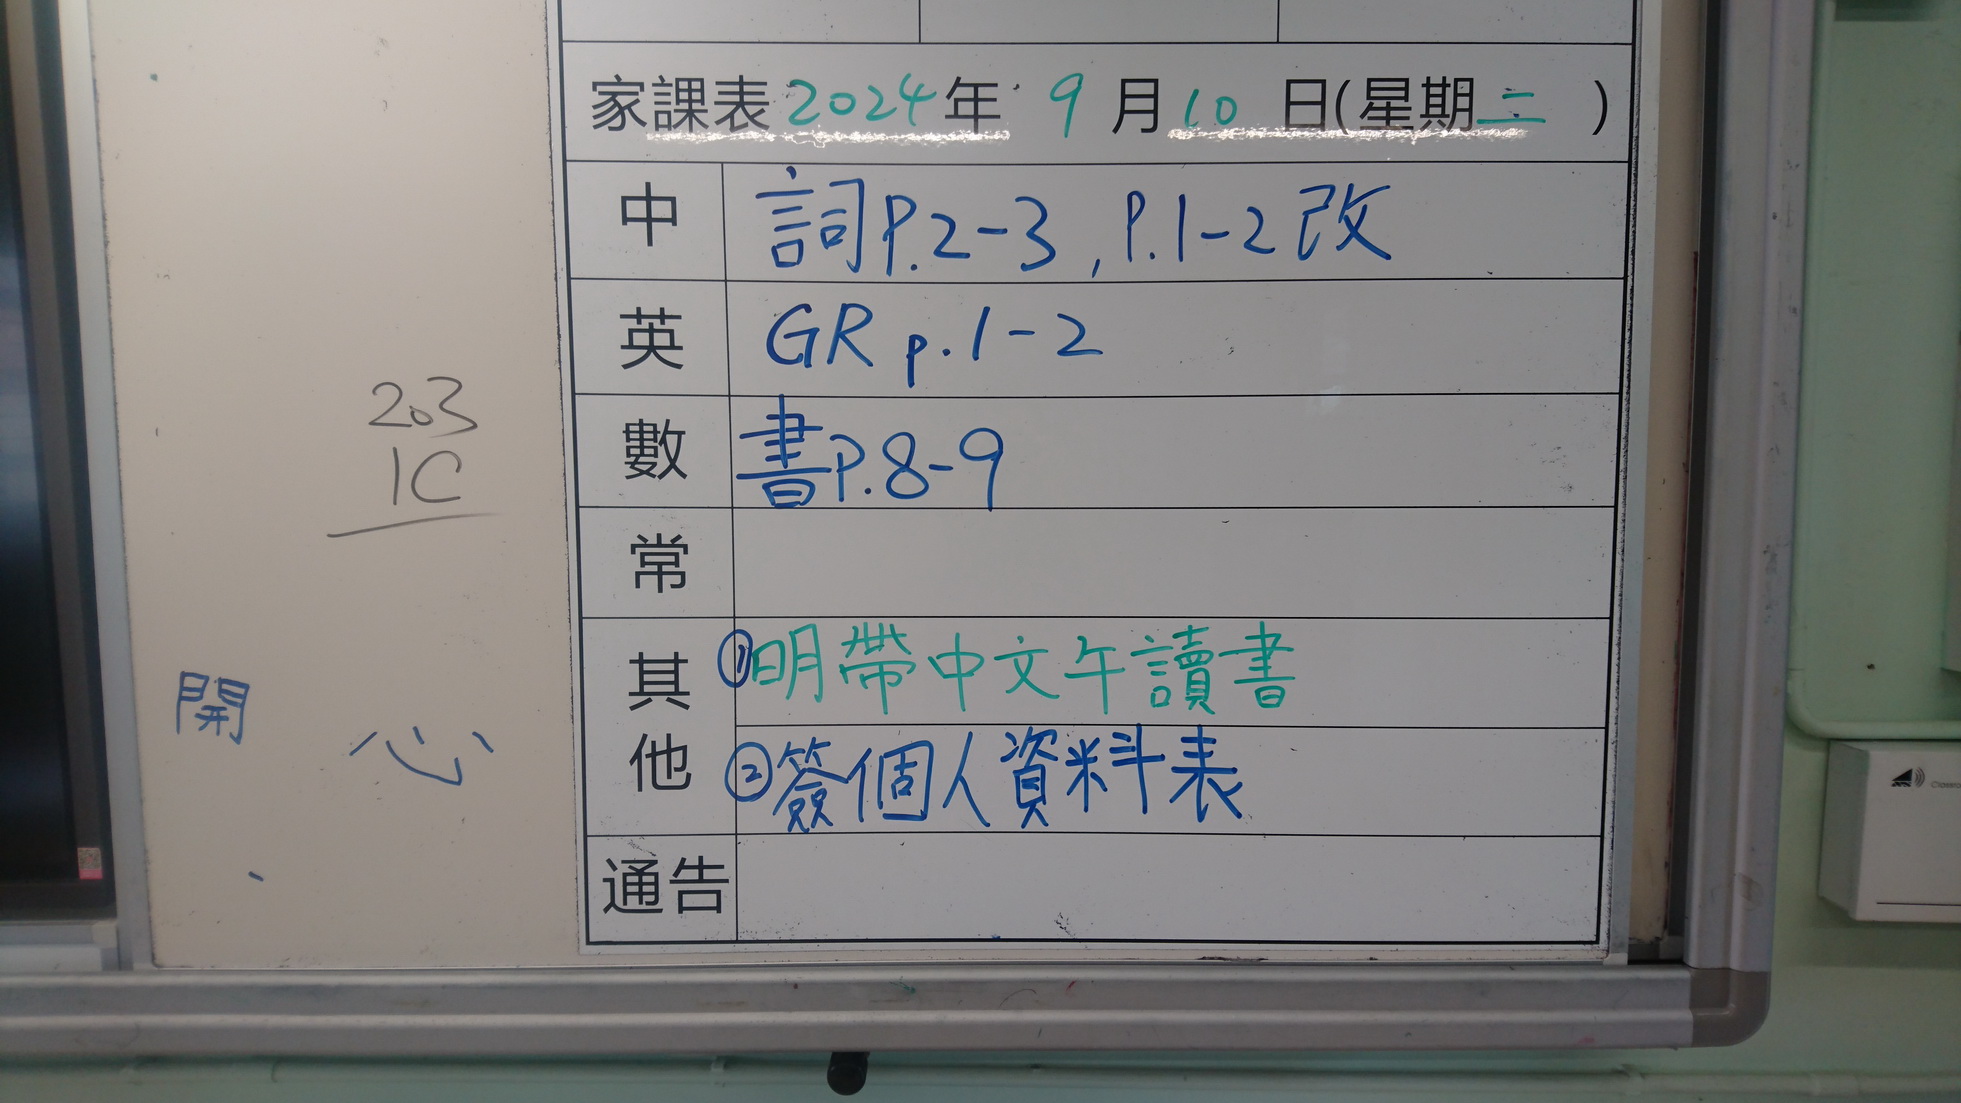 家課表2024年 9月10日(星期二)
中 詞P.2-3, P.1-2改
英 GR p.1-2
數 書P.8-9
常
其他 ①明帶中文午讀書
②簽個人資料表
通告
203
1C
開 心